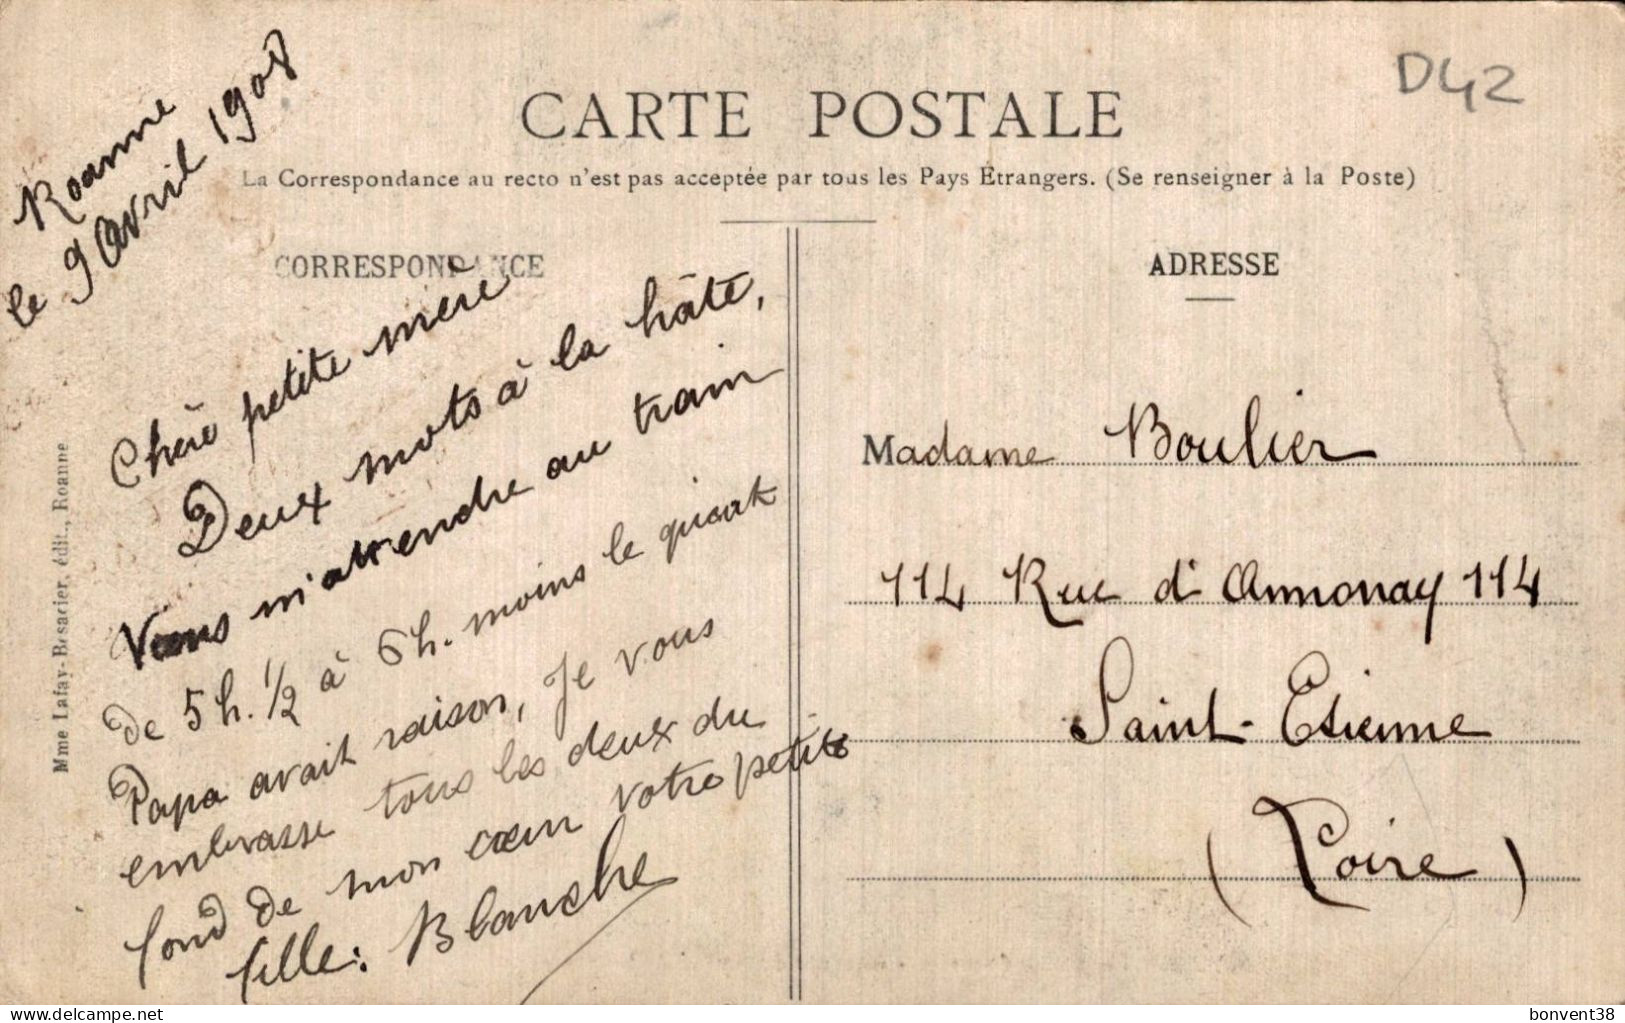 D42
CARTE POSTALE
La Correspondance au recto n'est pas acceptée par tous les Pays Étrangers. (Se renseigner à la Poste)
CORRESPONDANCE
Roanne
le 9 Avril 1908
Chère petite mère
Deux mots à la hâte,
Venez m'attendre au train
de 5 h. 1/2 à 6 h. moins le quart
Papa avait raison, je vous
embrasse tous les deux du
fond de mon cœur votre petite
fille : Blanche
Mme Lafay-Besacier, édit., Roanne
ADRESSE
Madame Boulier
114 Rue d'Annonay 114
Saint-Etienne
(Loire)
bonvent38